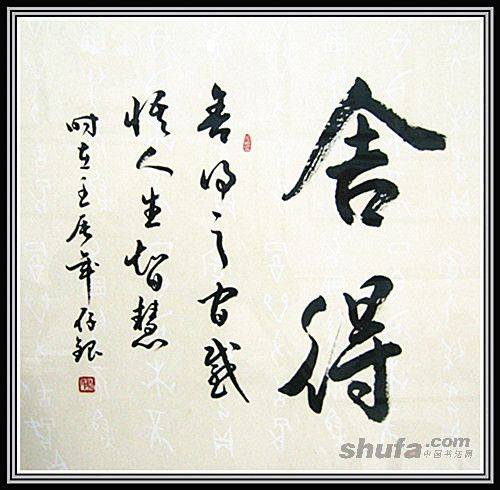 舍得
舍得之间感
悟人生智慧
时在壬辰年仔银
shufa.com
中国书法网